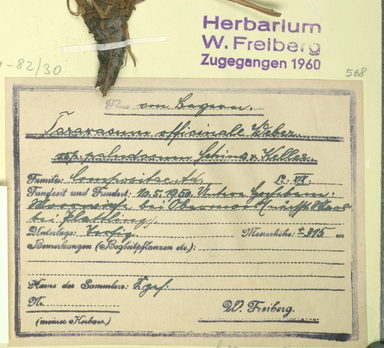 Herbarium
W. Freiberg
Zugegangen 1960
-82/30
568
Flora von Bayern.
Taraxacum officinale Weber
ssp. paludosum Schinz & Keller
Familie: Compositae L: VI
Fundzeit und Fundort: 10.5.1950.
bei Plattling.
Unterlage: torfig. Meereshöhe: ±315 m
Bemerkungen (Begleitpflanzen etc.):
Name des Sammlers:
Nr.
(meines Herbars.) W. Freiberg.